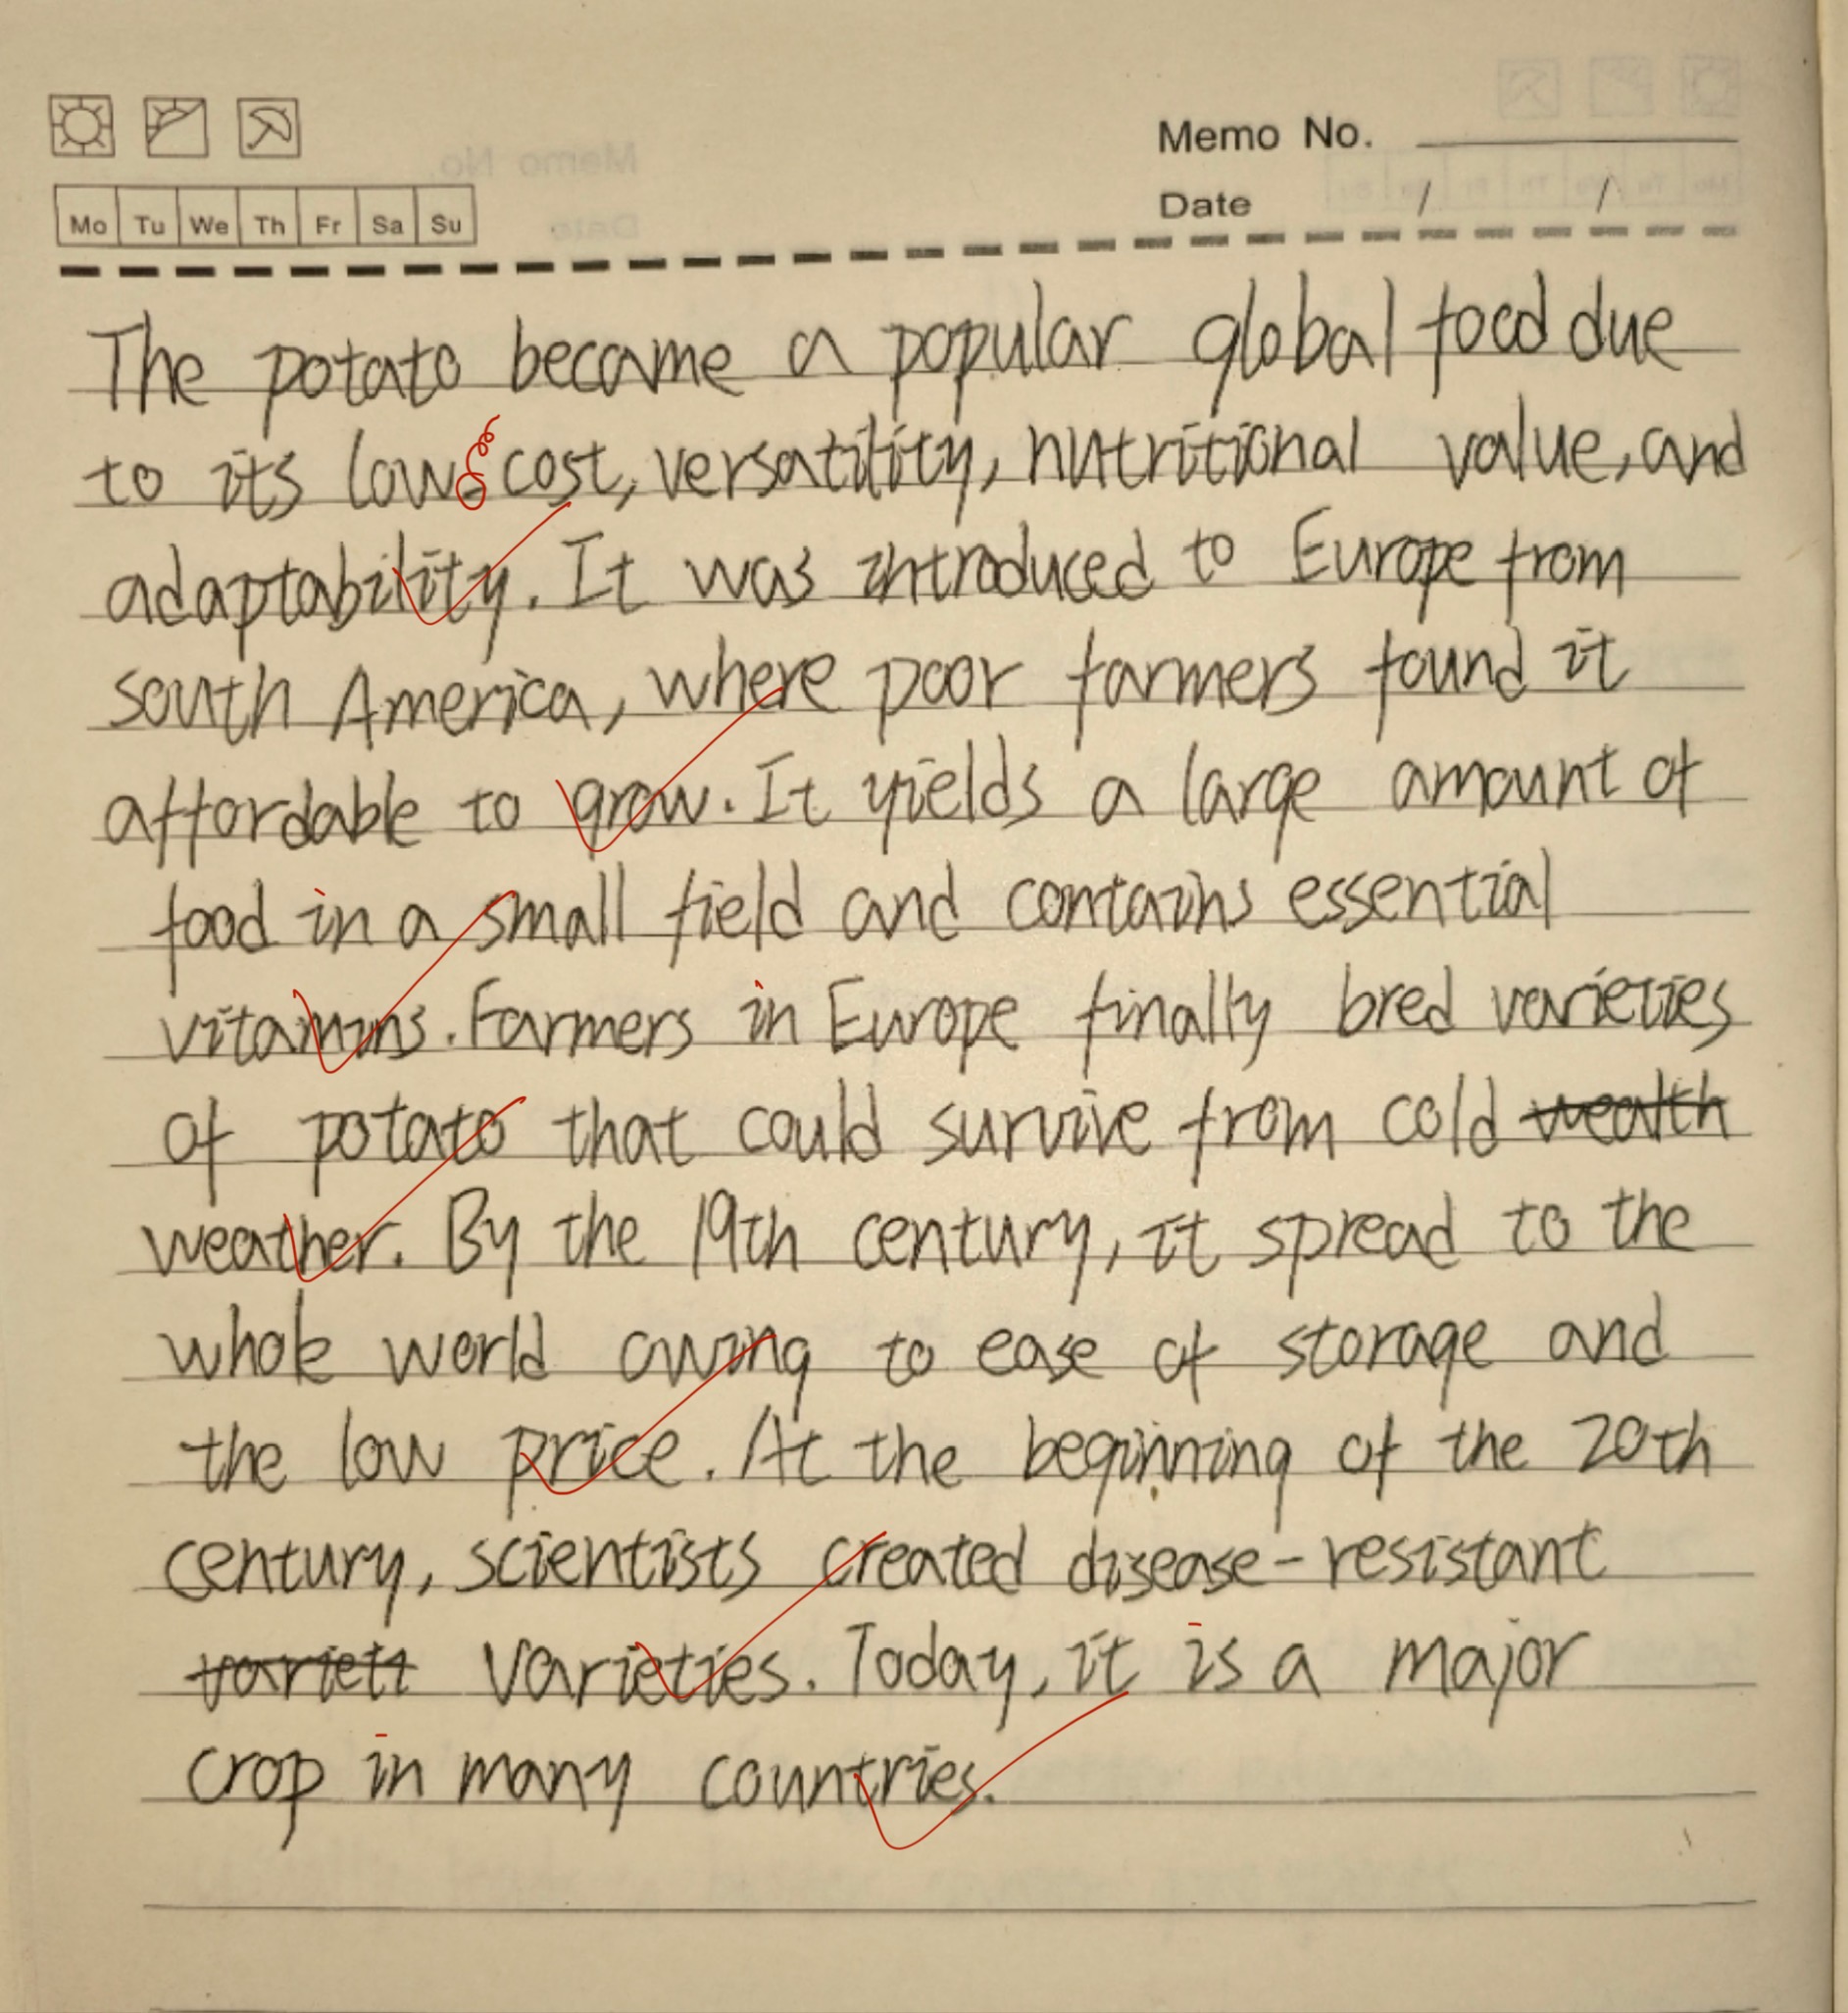 Memo No.
Mo Tu We Th Fr Sa Su
Date / /
The potato became a popular global food due
to its low cost, versatility, nutritional value, and
adaptability. It was introduced to Europe from
south America, where poor farmers found it
affordable to grow. It yields a large amount of
food in a small field and contains essential
vitamins. Farmers in Europe finally bred varieties
of potato that could survive from cold wealth
weather. By the 19th century, it spread to the
whole world owing to ease of storage and
the low price. At the beginning of the 20th
century, scientists created disease-resistant
varieti varieties. Today, it is a major
crop in many countries.